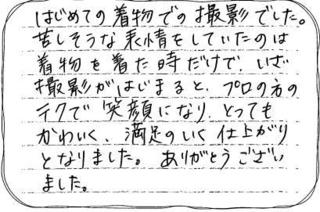 はじめての着物での撮影でした。
苦しそうな表情をしていたのは
着物を着た時だけで、いざ
撮影がはじまると、プロの方の
テクで笑顔になり、とっても
かわいく、満足のいく仕上がり
となりました。ありがとうござい
ました。